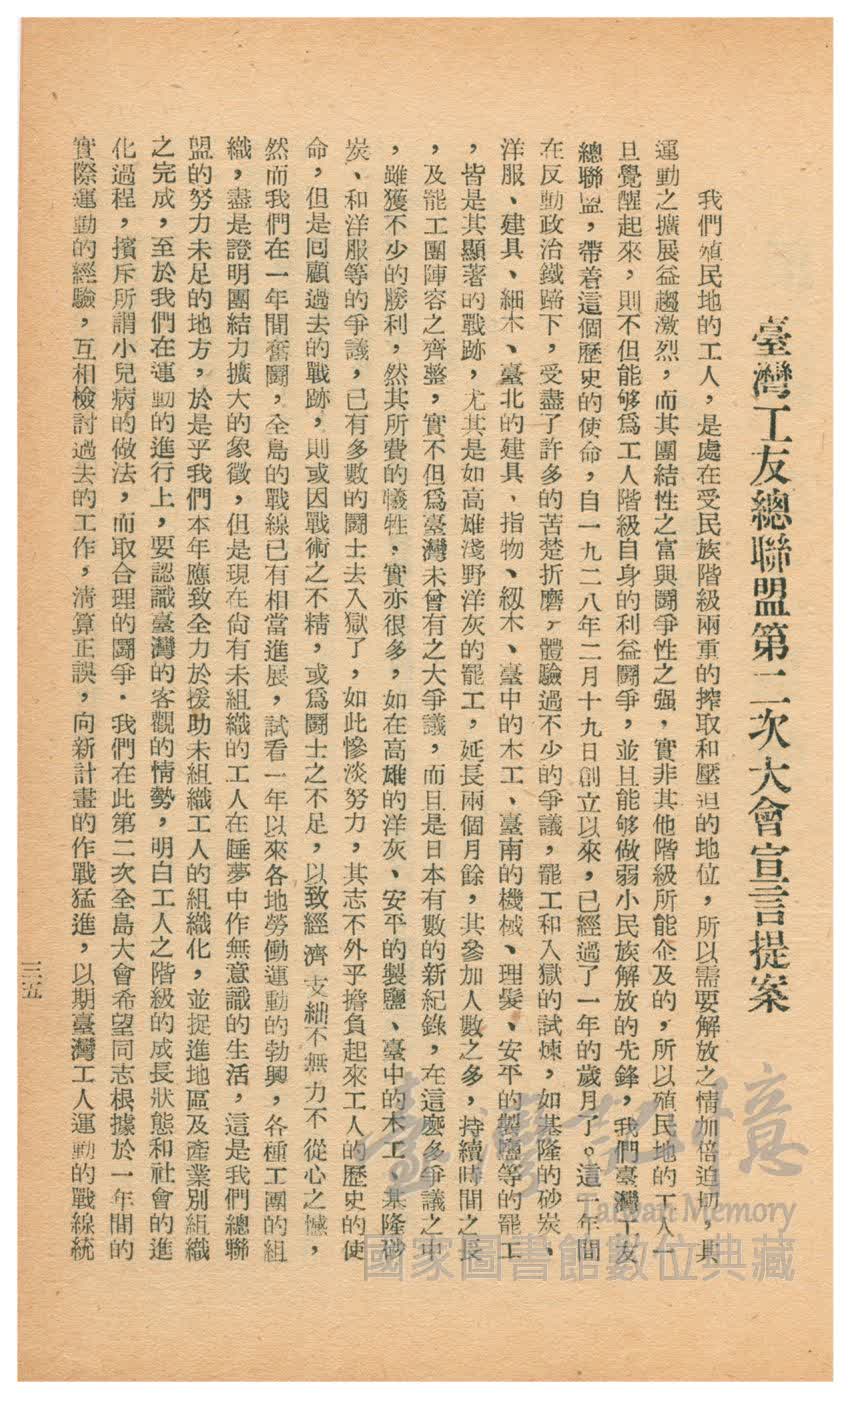 臺灣工友總聯盟第二次大會宣言提案
我們殖民地的工人，是處在受民族階級兩重的搾取和壓迫的地位，所以需要解放之情加倍迫切，其
運動之擴展益趨激烈，而其團結性之富與鬪爭性之强，實非其他階級所能企及的，所以殖民地的工人一
旦覺醒起來，則不但能够爲工人階級自身的利益鬪爭，並且能够做弱小民族解放的先鋒，我們臺灣工友
總聯盟，帶着這個歷史的使命，自一九二八年二月十九日創立以來，已經過了一年的歲月了。這一年間
在反動政治鐵蹄下，受盡了許多的苦楚折磨，體驗過不少的爭議，罷工和入獄的試煉，如基隆的砂炭、
洋服、建具、細木、臺北的建具、指物、級木、臺中的木工、臺南的機械、理髮、安平的製鹽等的罷工
，皆是其顯著的戰跡，尤其是如高雄淺野洋灰的罷工，延長兩個月餘，其參加人數之多，持續時間之長
，及罷工團陣容之齊整，實不但爲臺灣未曾有之大爭議，而且是日本有數的新紀錄，在這麽多爭議之中
，雖獲不少的勝利，然其所費的犧牲，實亦很多，如在高雄的洋灰、安平的製鹽、臺中的木工、基隆砂
炭、和洋服等的爭議，已有多數的鬪士去入獄了，如此慘淡努力，其志不外乎擔負起來工人的歷史的使
命，但是回顧過去的戰跡，則或因戰術之不精，或爲鬪士之不足，以致經濟支絀不無力不從心之憾，
然而我們在一年間奮鬪，全島的戰線已有相當進展，試看一年以來各地勞働運動的勃興，各種工團的組
織，盡是證明團結力擴大的象徵，但是現在尙有未組織的工人在睡夢中作無意識的生活，這是我們總聯
盟的努力未足的地方，於是乎我們本年應致全力於援助未組織工人的組織化，並捉進地區及產業別組織
之完成，至於我們在運動的進行上，要認識臺灣的客觀的情勢，明白工人之階級的成長狀態和社會的進
化過程，擯斥所謂小兒病的做法，而取合理的鬪爭．我們在此第二次全島大會希望同志根據於一年間的
實際運動的經驗，互相檢討過去的工作，淸算正誤，向新計畫的作戰猛進，以期臺灣工人運動的戰線統
三五
臺灣記憶
Taiwan Memory
國家圖書館數位典藏